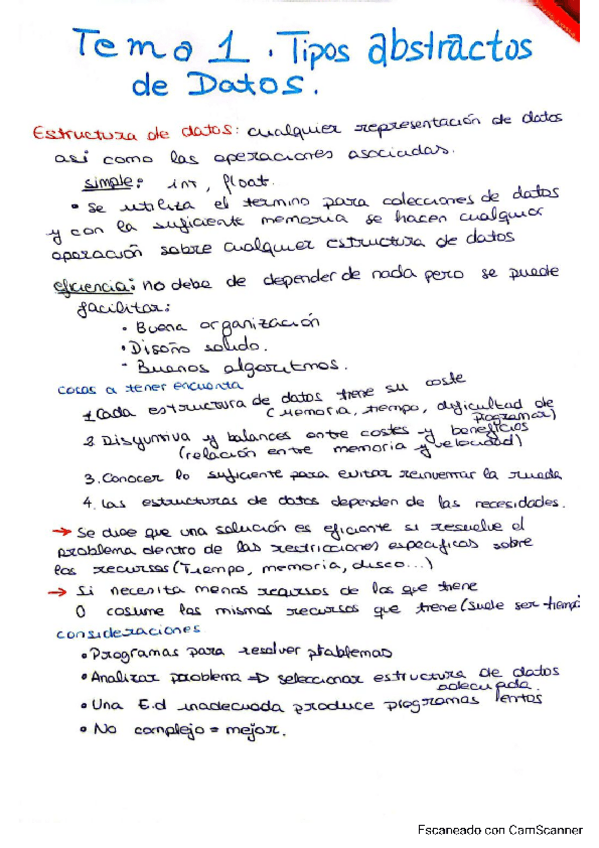 Tema 1. Tipos abstractos
de Datos.
Estructura de datos: cualquier representación de datos
así como las operaciones asociadas.
simple: int, float.
• se utiliza el termino para colecciones de datos
y con la suficiente memoria se hacen cualquier
operación sobre cualquier estructura de datos
eficiencia: no debe de depender de nada pero se puede
facilitar:
• Buena organización
• Diseño solido.
- Buenos algoritmos.
cosas a tener encuenta
1. Cada estructura de datos tiene su coste
(memoria, tiempo, dificultad de
programar)
2 Disyuntiva y balances entre costes y beneficios
(relación entre memoria y velocidad)
3. Conocer lo suficiente para evitar reinventar la rueda
4. Las estructuras de datos dependen de las necesidades.
→ Se dice que una solución es eficiente si resuelve el
problema dentro de las restricciones especificas sobre
los recursos (Tiempo, memoria, disco...)
→ Si necesita menos recursos de los que tiene
O cosume los mismos recursos que tiene (suele ser tiempo
consideraciones
• Programas para resolver ptoblemas
• Analizar problema ⇒ seleccionar estructura de datos
adecuada.
• Una E.d inadecuada produce programas lentos
• No complejo = mejor.
Escaneado con CamScanner